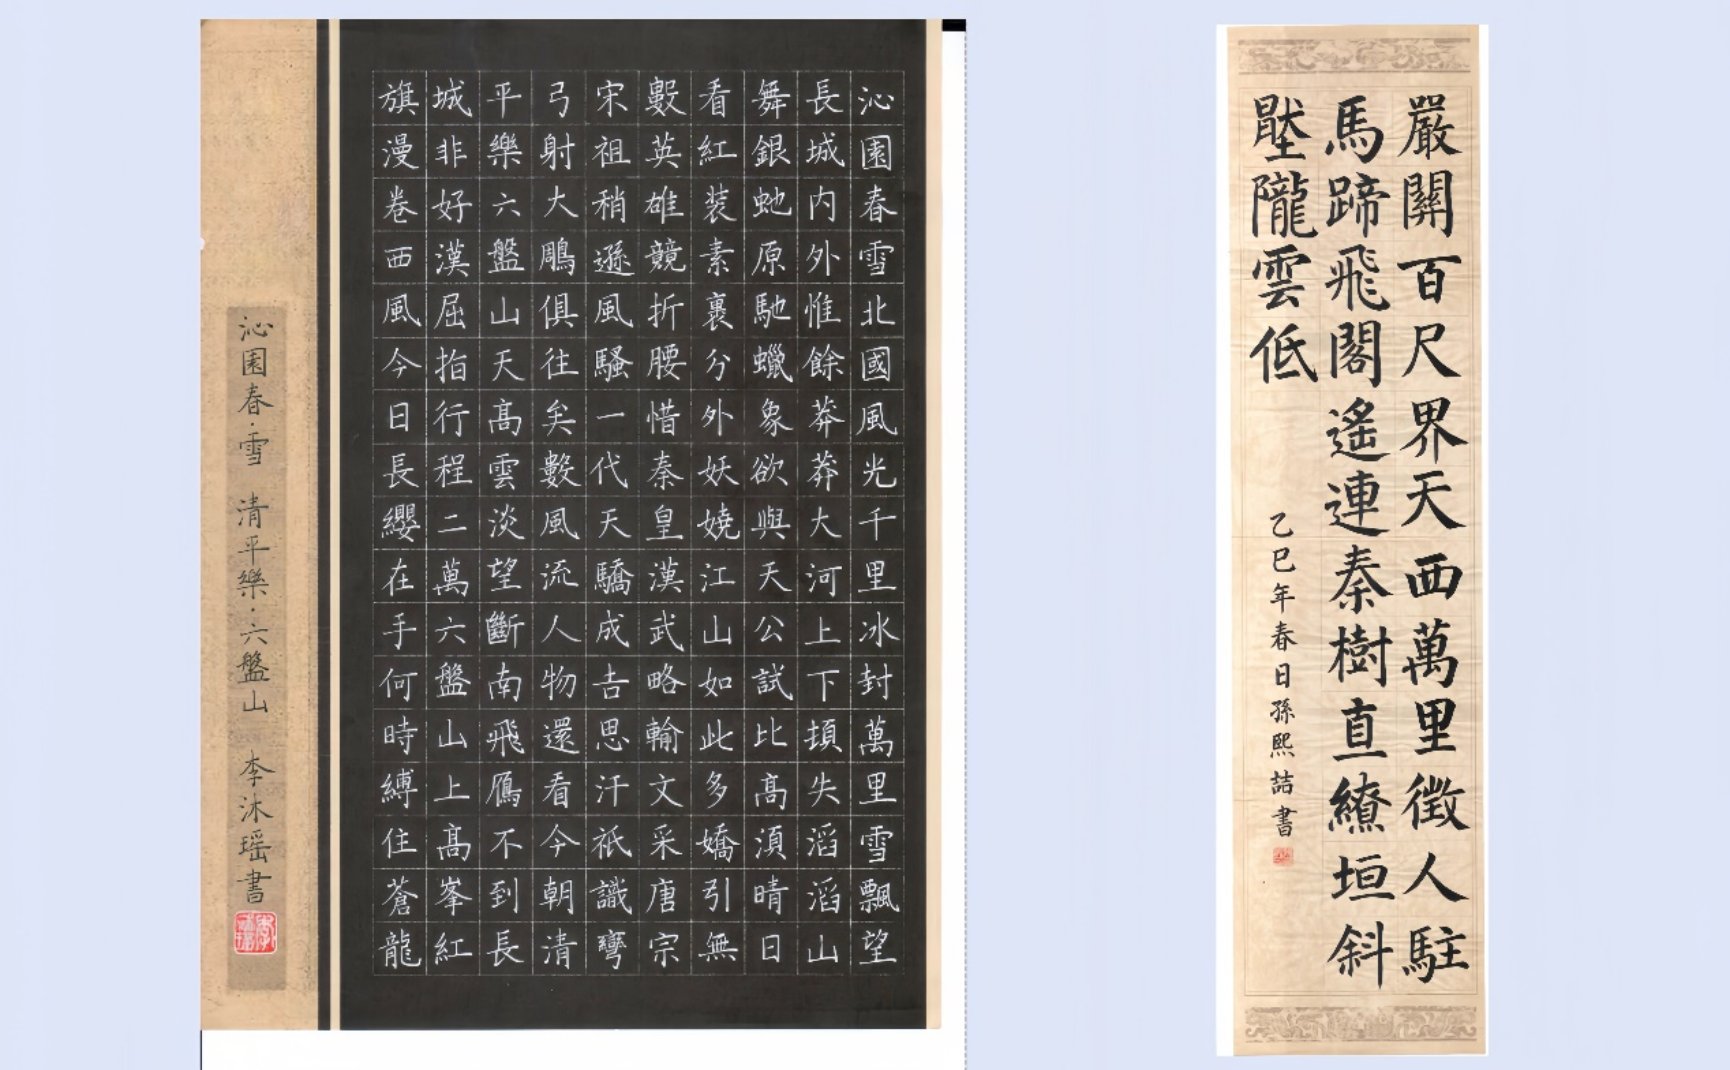 沁園春雪北國風光千里冰封萬里雪飄望
長城内外惟餘莽莽大河上下頓失滔滔山
舞銀虵原馳蠟象欲與天公試比髙湏晴日
看紅裝素裹分外妖嬈江山如此多嬌引無
數英雄競折腰惜秦皇漢武略輸文采唐宗
宋祖稍遜風騷一代天驕成吉思汗祇識彎
弓射大鵰俱往矣數風流人物還看今朝清
平樂六盤山天髙雲淡望斷南飛鴈不到長
城非好漢屈指行程二萬六盤山上髙峯紅
旗漫卷西風今日長纓在手何時縛住蒼龍
沁園春·雪 清平樂·六盤山 李沐瑶書
嚴關百尺界天西萬里徵人駐
馬蹄飛閣遙連秦樹直繚垣斜
壓隴雲低
乙巳年春日孫熙詰書